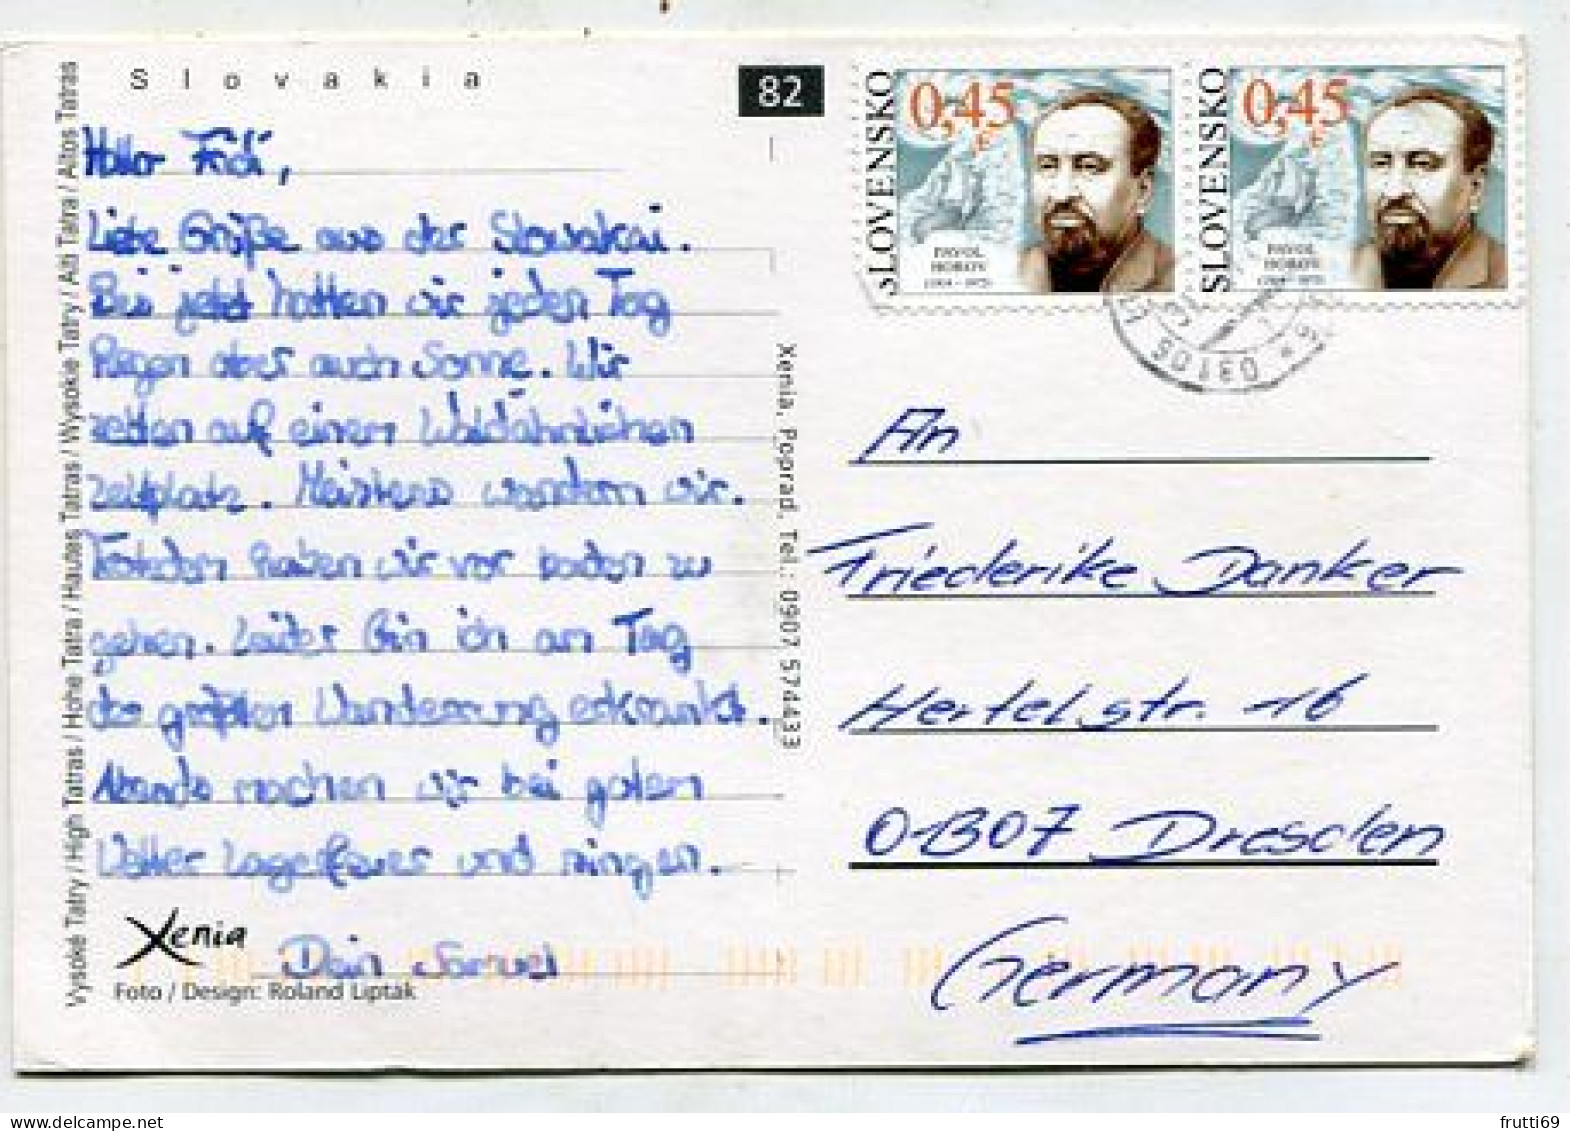 Slovakia
82
Hallo Fridi,
Liebe Grüße aus der Slowakai.
Bis jetzt hatten wir jeden Tag
Regen aber auch Sonne. Wir
zelten auf einem Waldähnlichen
Zeltplatz. Meistens wandern wir.
Trotzdem haben wir vor baden zu
gehen. Leider bin ich am Tag
der größten Wanderung erkrankt.
Abends machen wir bei gutem
Wetter Lagerfeuer und singen.
Dein Samuel
Xenia
Foto / Design: Roland Lipták
Vysoké Tatry / High Tatras / Hohe Tatra / Hautes Tatras / Wysokie Tatry / Alti Tatra / Altos Tatras
Xenia, Poprad, Tel.: 0907 574433
SLOVENSKO
0,45
€
PAVOL
HOROV
SLOVENSKO
0,45
€
PAVOL
HOROV
031 05
An
Friederike Danker
Hertelstr. 16
01307 Dresden
Germany
frutti69